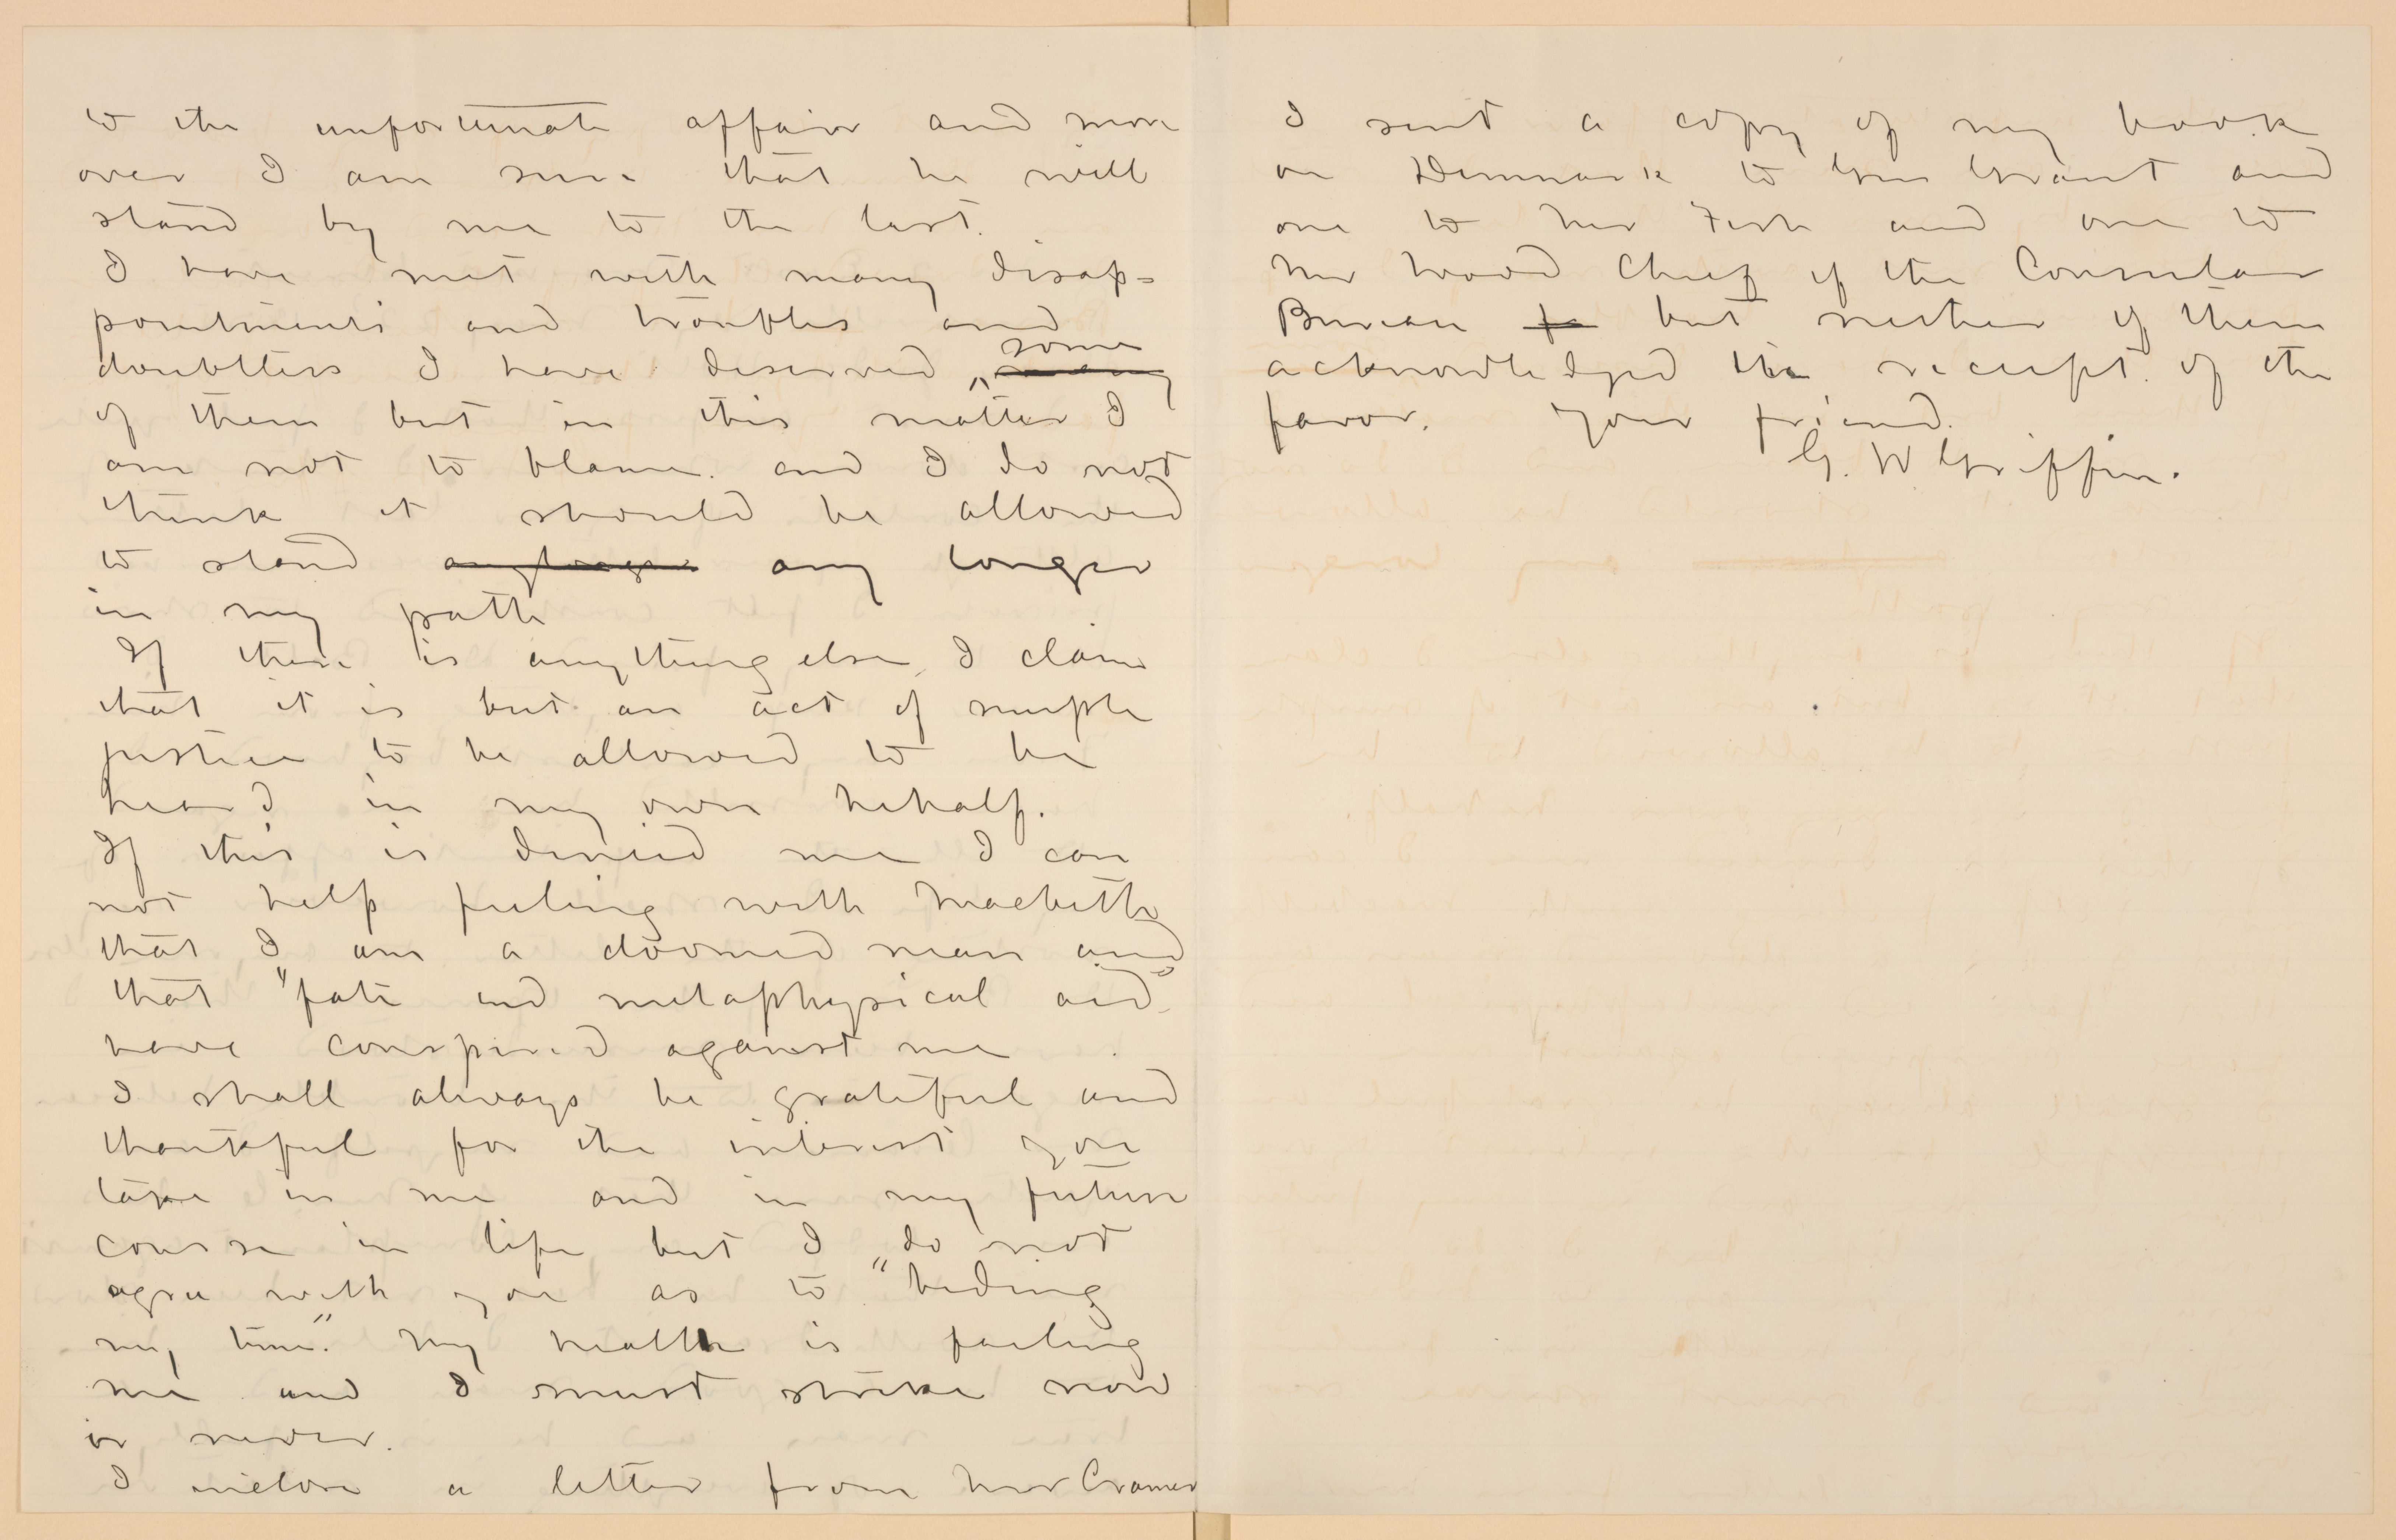 to the unfortunate affair and more
over I am sure that he will
stand by me to the last.
I have met with many disap=
pointments and troubles and
doubtless I have deserved some many
of them but in this matter I
am not to blame. and I do not
think it should be allowed
to stand any longer any longer
in my path
If there is anything else, I claim
that it is but an act of simple
justice to be allowed to be
heard in my own behalf.
If this is denied me I can
not help feeling with Macbeth
that I am a doomed man and
that "fate and metaphysical aid"
have conspired against me
I shall always be grateful and
thankful for the interest you
take in me and in my future
course in life but I do not
agree with you as to "biding
my time." My health is failing
me and I must strike now
or never.
I inclose a letter from Mr Cramer
I sent a copy of my book
on Denmark to Gen Grant and
one to Mr Fish and one to
Mr Wood Chief of the Consular
Bureau fo but neither of them
acknowledged the receipt of the
favor. Your friend.
G. W Griffin.